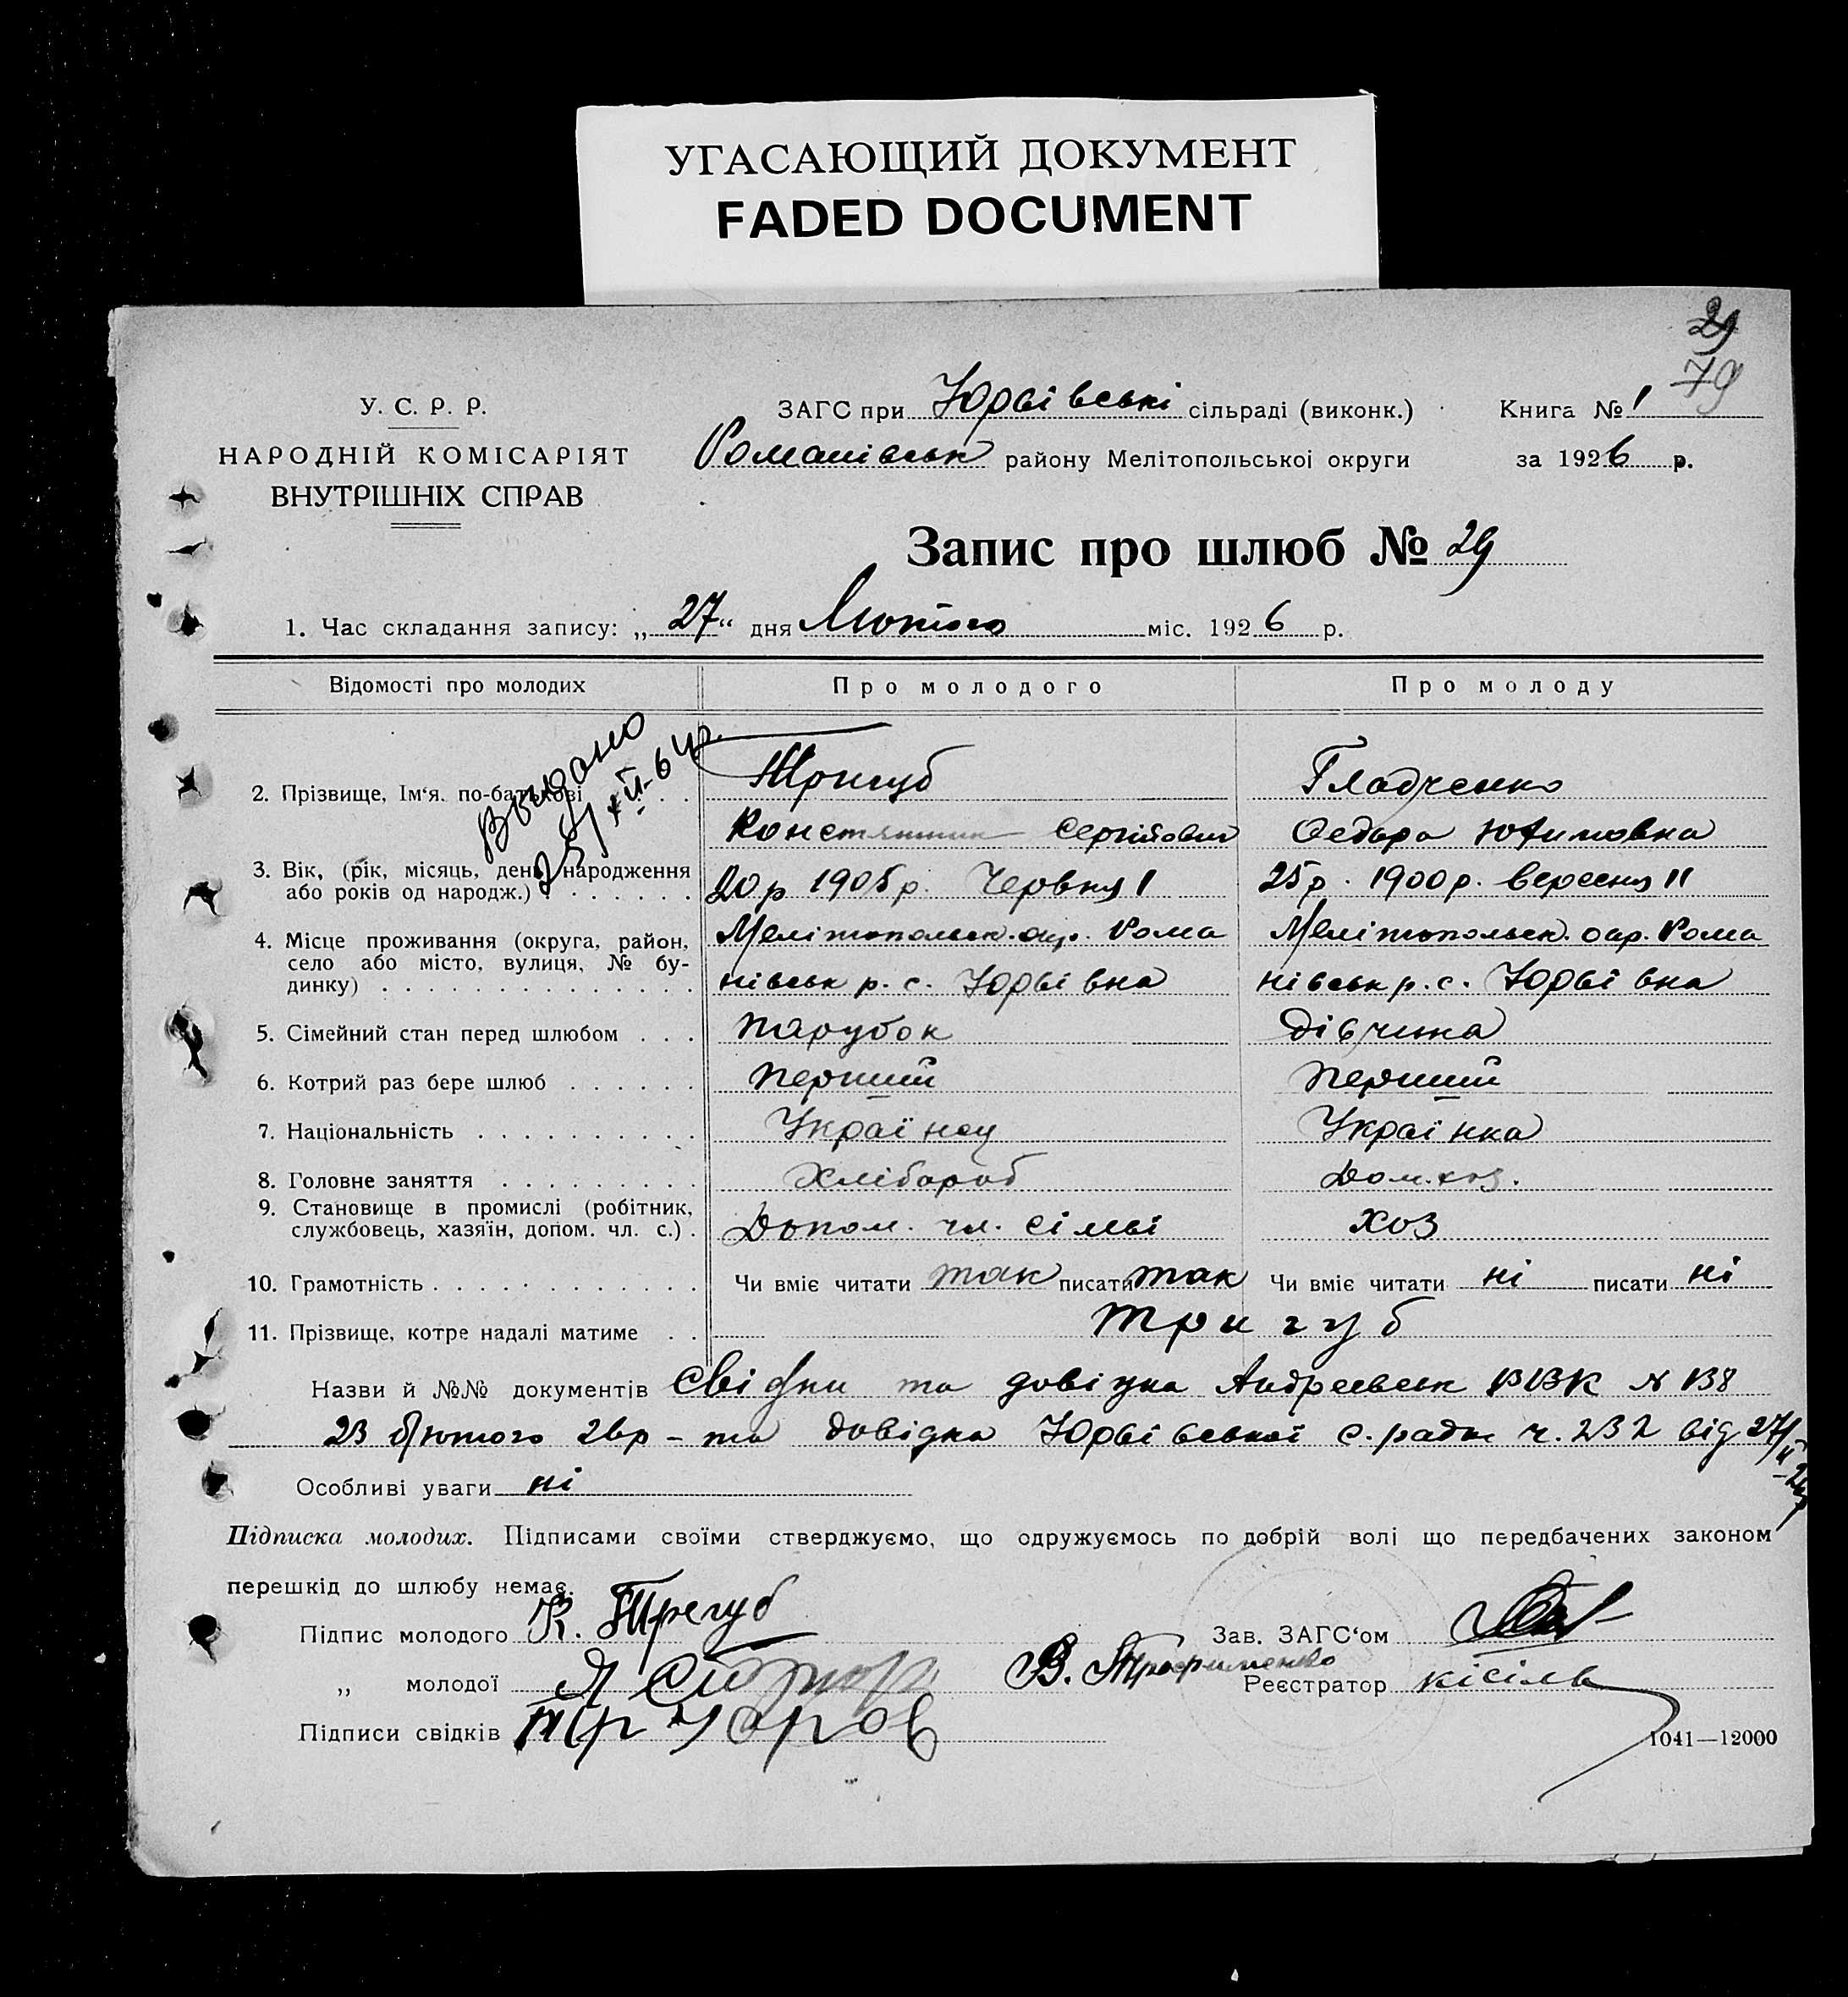 УГАСАЮЩИЙ ДОКУМЕНТ
FADED DOCUMENT
29
79
У. С. Р. Р.
НАРОДНІЙ КОМІСАРІЯТ
ВНУТРІШНІХ СПРАВ
ЗАГС при Юрʼївські сільраді (виконк.)
Романівськ району Мелітопольської округи
Книга № 1
за 1926 р.
Запис про шлюб № 29
1. Час складання запису: „27“ дня Лютого міс. 1926 р.
Відомості про молодих Про молодого Про молоду
Выдано
25/XII-64р.
2. Прізвище, Імʼя. по-батькові . . . Тригуб Гладченко
Констянтин Сергійович Федора Юхимовна
3. Вік, (рік, місяць, день народження 20р 1905р. Червня 1 25р. 1900р. вересня 11
або років од народж.) . . . . . . .
4. Місце проживання (округа, район, Мелітопольськ. окр. Рома Мелітопольськ. окр. Рома
село або місто, вулиця, № бу- нівськ р. с. Юрʼївка нівськ р. с. Юрʼївка
динку) . . . . . . . . . . . . . .
5. Сімейний стан перед шлюбом . . . парубок дівчина
6. Котрий раз бере шлюб . . . . . . перший перший
7. Національність . . . . . . . . . . Українец Українка
8. Головне заняття . . . . . . . . . Хлібороб Дом.хоз.
9. Становище в промислі (робітник,
службовець, хазяїн, допом. чл. с.) . Допом. чл. сімʼї хоз
10. Грамотність . . . . . . . . . . . . Чи вміє читати так писати так Чи вміє читати ні писати ні
11. Прізвище, котре надалі матиме . . Тригуб
Назви й №№ документів Свідки та довідка Андреевськ ВВК № 138
23 лютого 26р – та довідка Юрʼївської с. ради ч. 232 від 27/II-26р
Особливі уваги ні
Підписка молодих. Підписами своїми стверджуємо, що одружуємось по добрій волі що передбачених законом
перешкід до шлюбу немає.
Підпис молодого К. Трегуб Зав. ЗАГСʻом
„ молодої В. Трофименко Реєстратор Кісіль
Підписи свідків
1041—12000